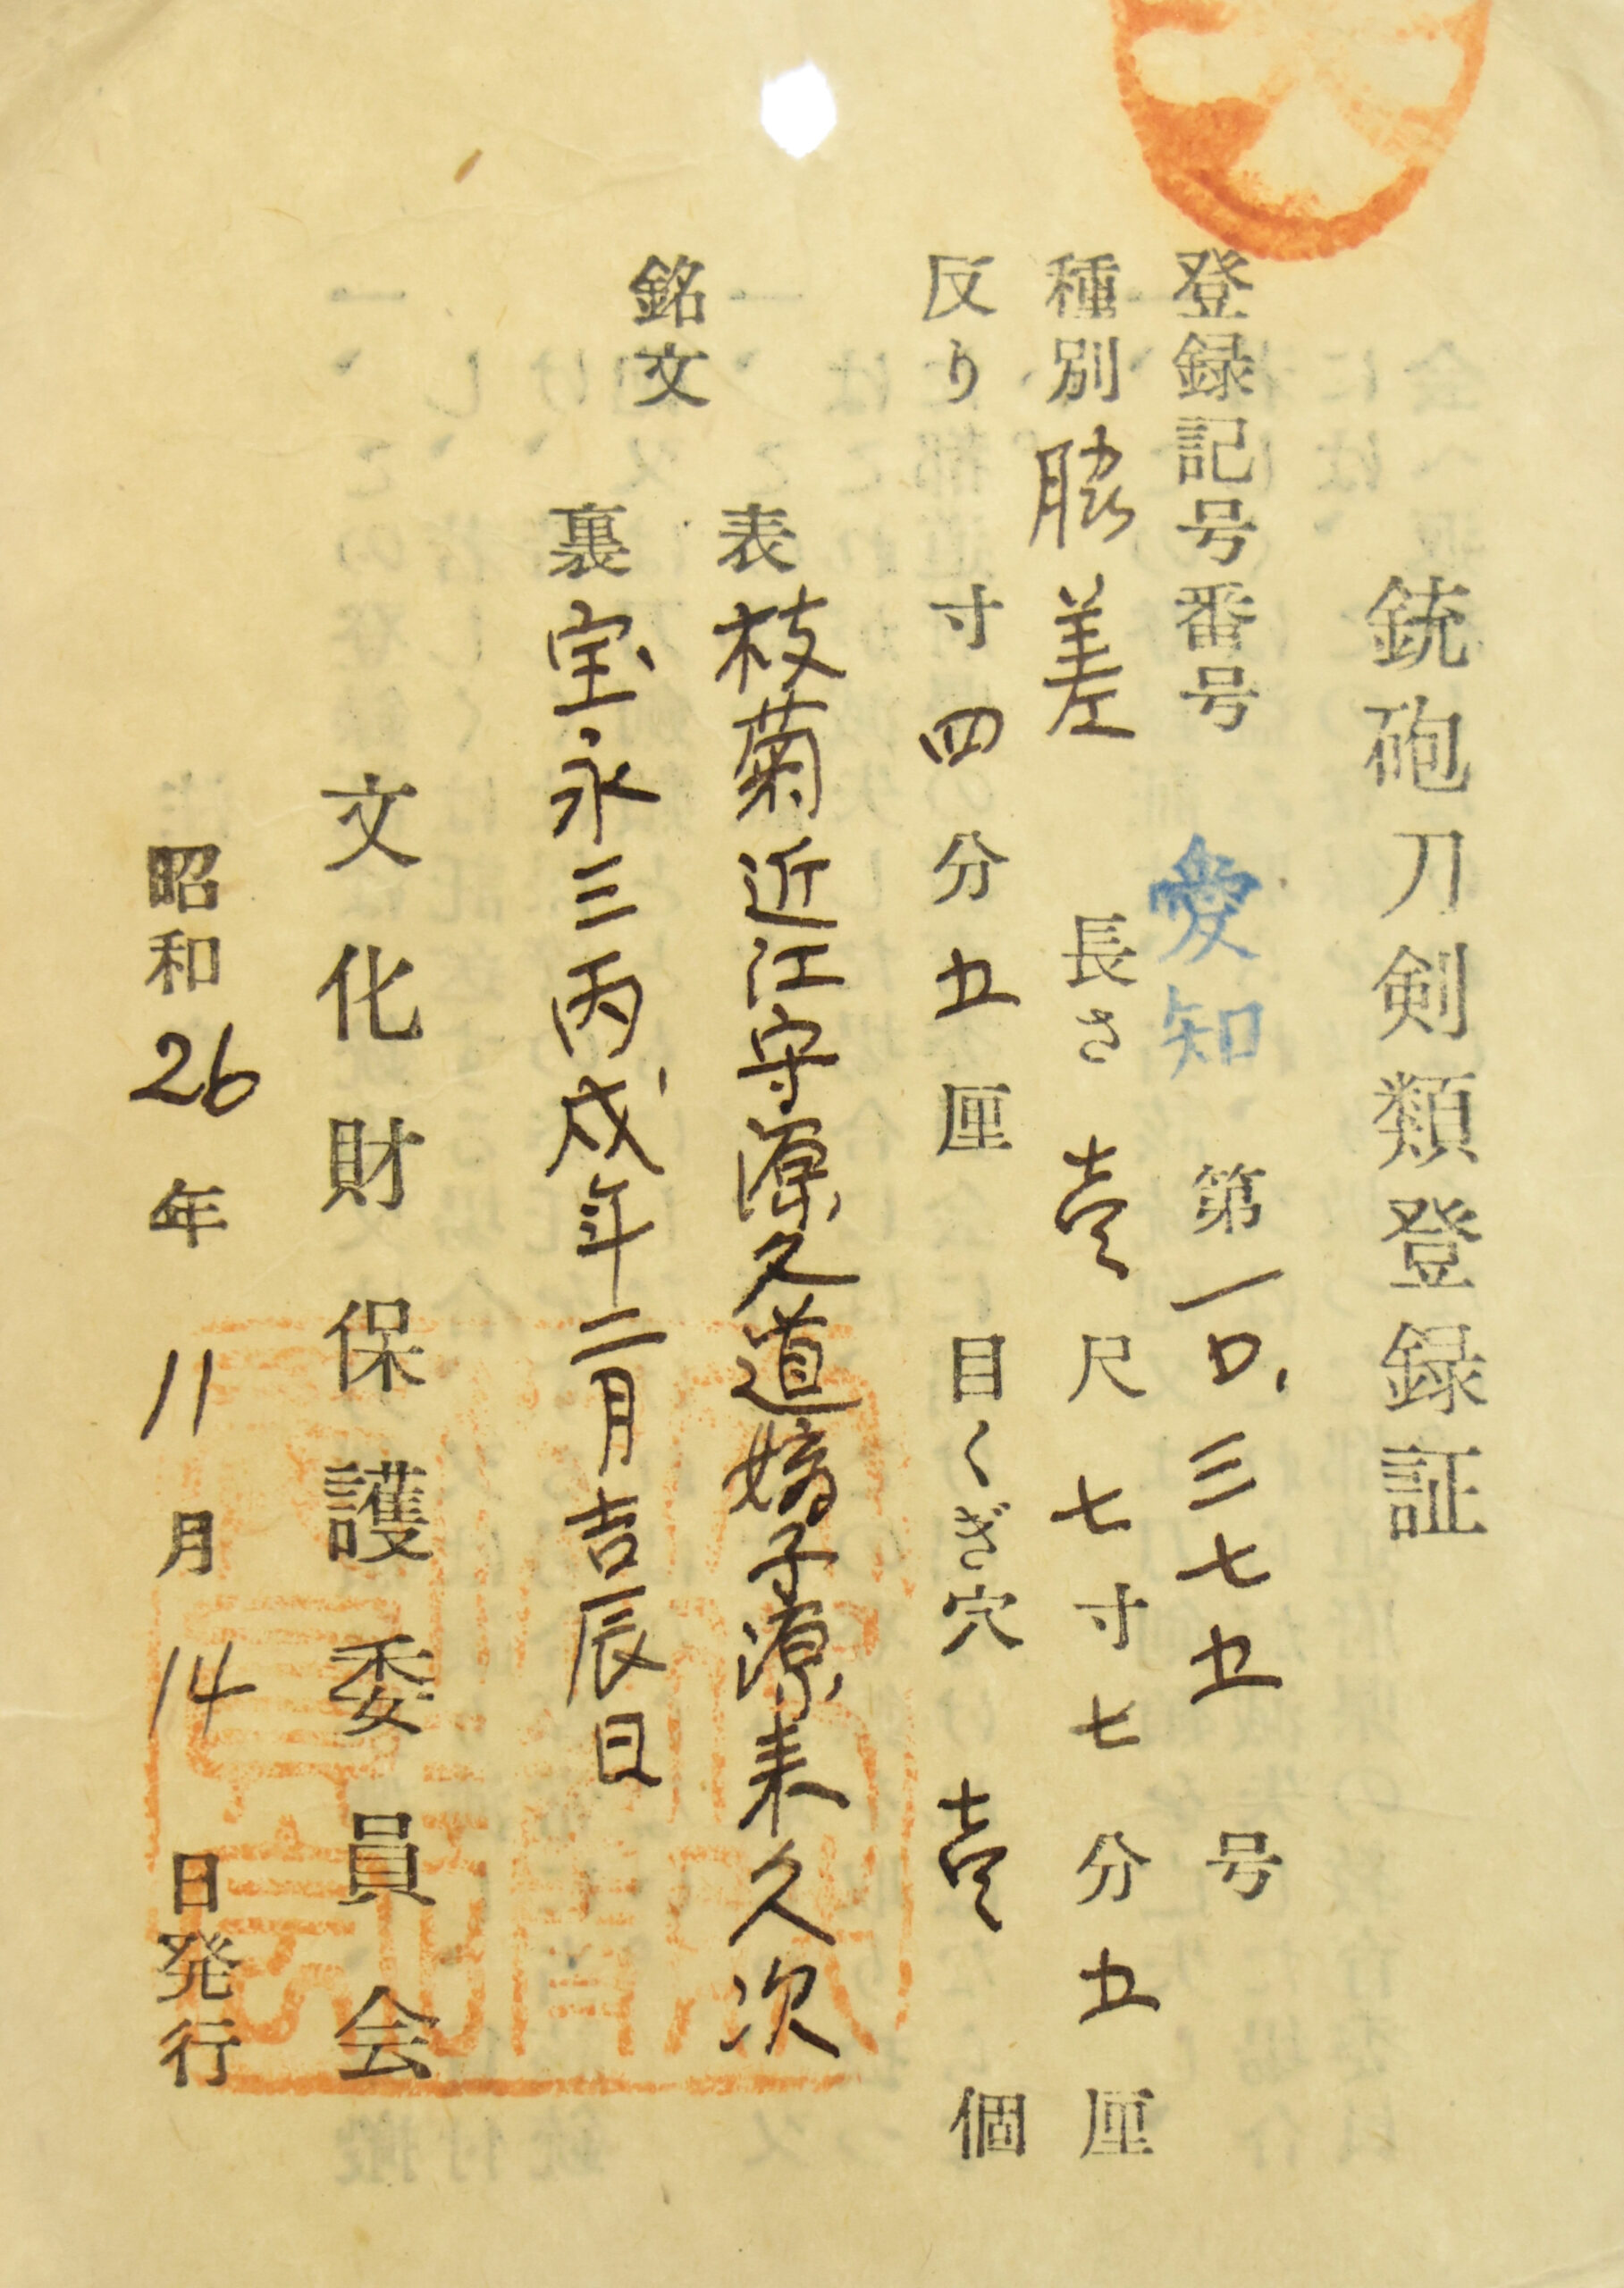 銃砲刀剣類登録証
登録記号番号 愛知 第一〇、三七五号
種別 脇差 長さ 壱尺七寸七分五厘
反り 寸四分五厘 目くぎ穴 壱個
銘文
表 枝菊近江守源久道嫡子源来久次
裏 宝永三丙戌年二月吉辰日
文化財保護委員会
昭和26年11月14日発行